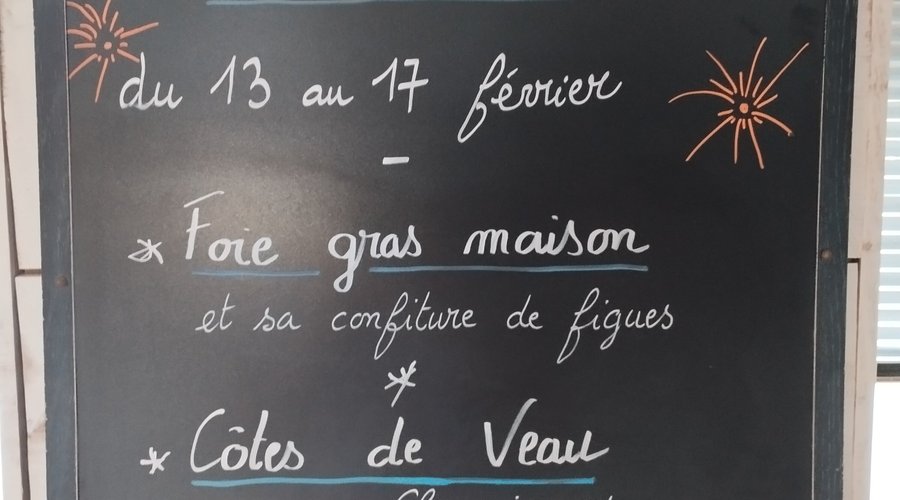 du 13 au 17 février
-
* Foie gras maison
et sa confiture de figues
*
* Côtes de Veau